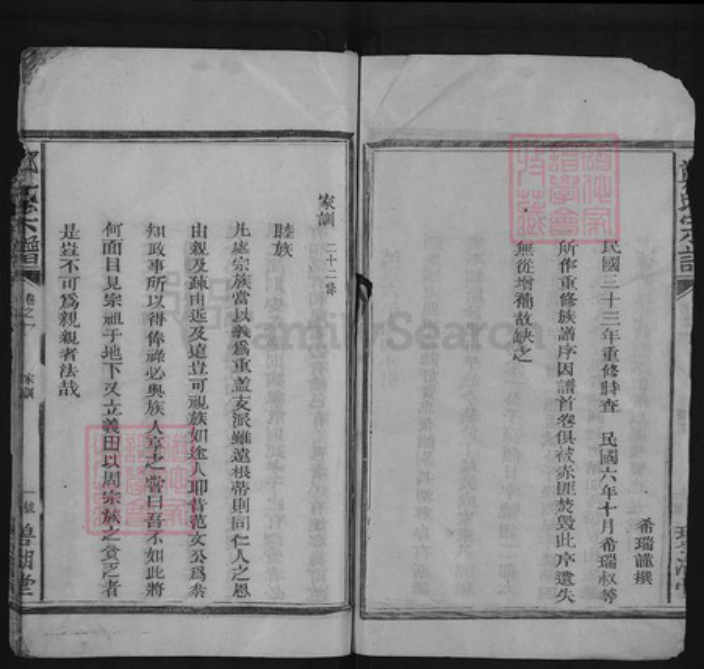 希瑞謹撰
民國三十三年重修時查 民國六年十月希瑞叔等
所作重修族譜序因譜首卷俱被赤匪焚毀此序遺失
無從增補故缺之
家訓 二十二條
睦族
凡處宗族當以義為重蓋支派雖遠根蒂則同仁人之恩
由親及疎由近及遠豈可視族如途人耶昔范文公為叅
知政事所以得俸祿必與族人享之嘗曰吾不如此將
何面目見宗祖于地下又立義田以周宗族之貧乏者
是豈不可為親親者法哉
氏宗譜
卷之一
家訓
一號
碧湖堂
FamilySearch